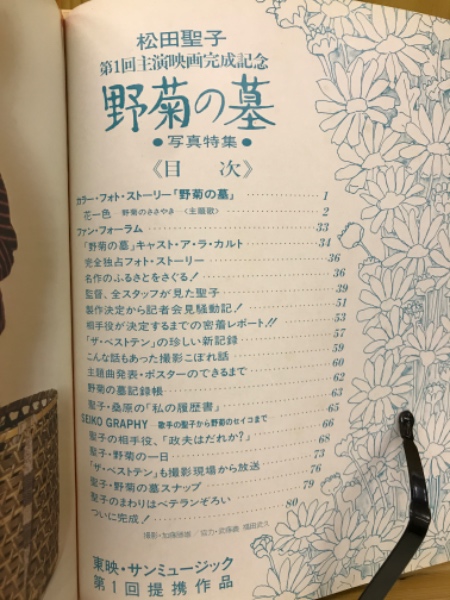 松田聖子
第1回主演映画完成記念
野菊の墓
●写真特集●
《目 次》
カラー・フォト・ストーリー「野菊の墓」 1
花一色 野菊のささやき〈主題歌〉 2
ファン・フォーラム 33
「野菊の墓」キャスト・ア・ラ・カルト 34
完全独占フォト・ストーリー 36
名作のふるさとをさぐる! 36
監督、全スタッフが見た聖子 39
製作決定から記者会見騒動記! 51
相手役が決定するまでの密着レポート!! 53
「ザ・ベストテン」の珍しい新記録 57
こんな話もあった撮影こぼれ話 59
主題曲発表・ポスターのできるまで 60
野菊の墓記録帳 62
聖子・桑原の「私の履歴書」 63
SEIKO GRAPHY 歌手の聖子から野菊のセイコまで 65
聖子の相手役、「政夫はだれか?」 66
聖子・野菊の一日 68
「ザ・ベストテン」も撮影現場から放送 73
聖子・野菊の墓スナップ 76
聖子のまわりはベテランぞろい 79
ついに完成! 80
東映・サンミュージック
第1回提携作品